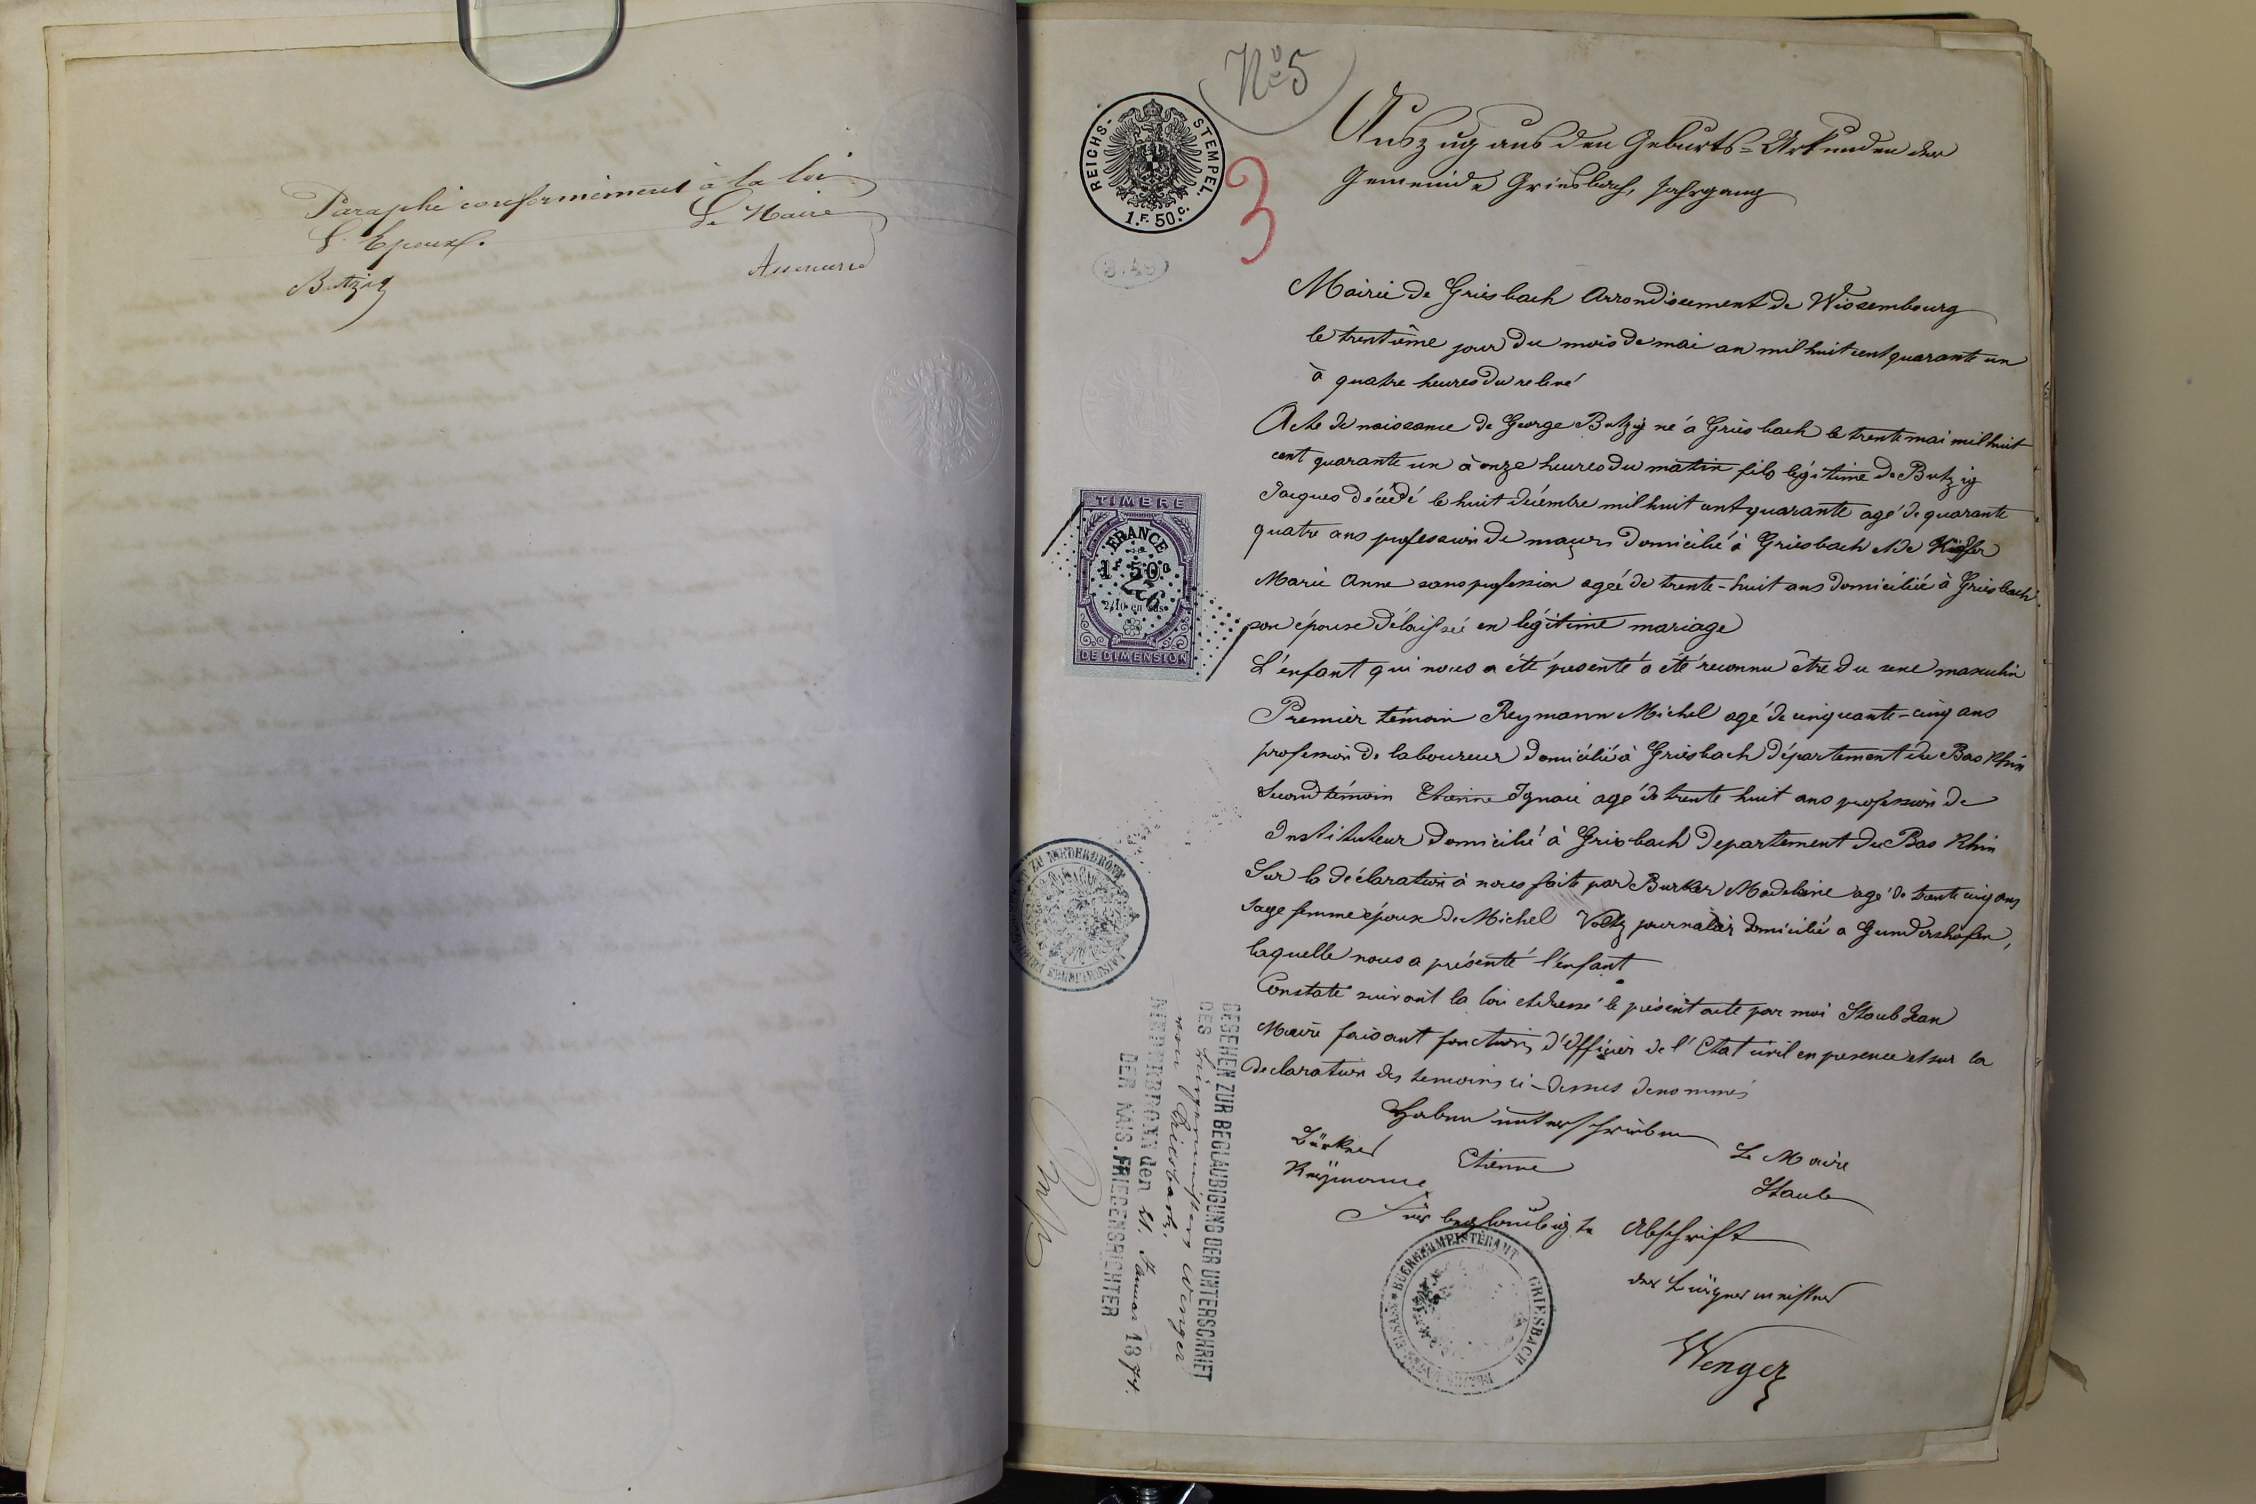 Paraphé conformément à la loi
L'Epoux. Le Maire
Butzig
Nº 5
REICHS-STEMPEL.
1.F.50.C.
3
Auszug aus den Geburts-Urkunden der
Gemeinde Griesbach, Jahrgang
Mairie de Griesbach Arrondissement de Wissembourg
le trentième jour du mois de mai an mil huit cent quarante un
à quatre heures du relevé
Acte de naissance de George Butzig né à Griesbach le trente mai mil huit
cent quarante un à onze heures du matin fils légitime de Butzig
Jacques décédé le huit décembre mil huit cent quarante agé de quarante
quatre ans profession de maçon domicilié à Griesbach et de Kieffer
Marie Anne sans profession agée de trente-huit ans domiciliée à Griesbach
son épouse délaissée en légitime mariage
L'enfant qui nous a été présenté a été reconnu être du sexe masculin
Premier témoin Reymann Michel agé de cinquante-cinq ans
profession de laboureur domicilié à Griesbach département du Bas Rhin
Second témoin Etienne Ignace agé de trente huit ans profession de
Instituteur domicilié à Griesbach departement du Bas Rhin
Sur la déclaration à nous faite par Burker Madeleine agé de trente cinq ans
sage femme épouse de Michel Voltz journalier domicilié a Gundershofen,
laquelle nous a présenté l'enfant
Constaté suivant la loi et dressé le présent acte par moi Staub Jean
Maire faisant fonctions d'officier de l'Etat civil en presence et sur la
declaration des temoins ci-dessus denommés
Haben unterschrieben
Bürker Etienne Le Maire
Reymann Staub
Für beglaubigte Abschrift
der Bürgermeister
Wenger
TIMBRE
FRANCE
1F 50c
2/10 en sus
DE DIMENSION
ZU NIEDERBRONN
KAISERLICHES
GESEHEN ZUR BEGLAUBIGUNG DER UNTERSCHRIFT
DES Bürgermeisters Wenger
von Griesbach,
NIEDERBRONN den 21. Januar 1874.
DER KAIS. FRIEDENSRICHTER
BUERGERMEISTERAMT GRIESBACH